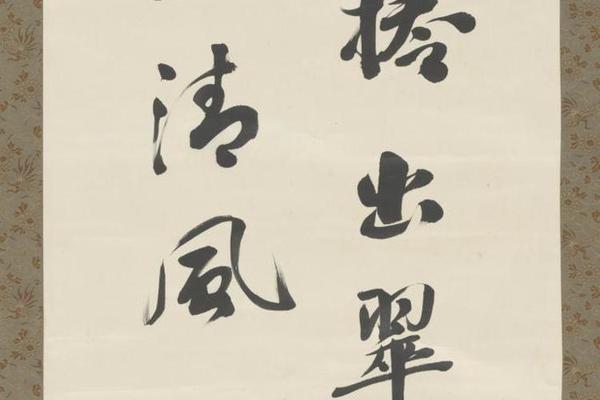 出翠
清風